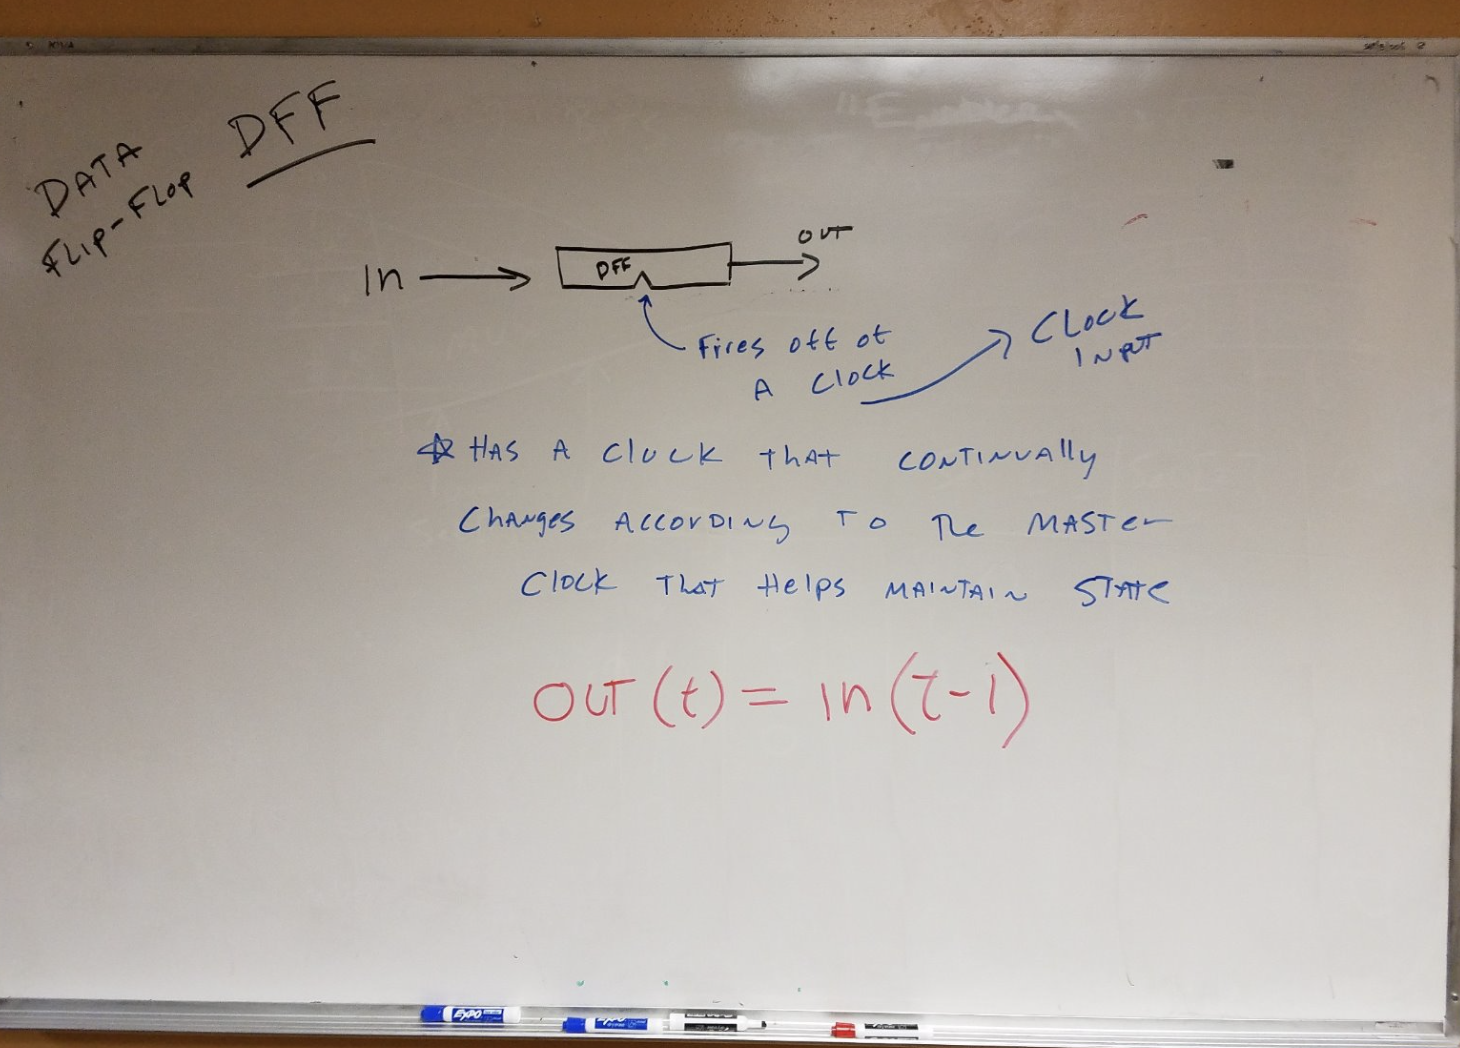 DFF
DATA
FLIP-FLOP
OUT
In
DFF
Fires off of
A Clock
Clock
INPUT
HAS A Clock that continually
Changes According To The Master
Clock That Helps maintain State
OUT(t) = in(t-1)
EXPO
EXPO